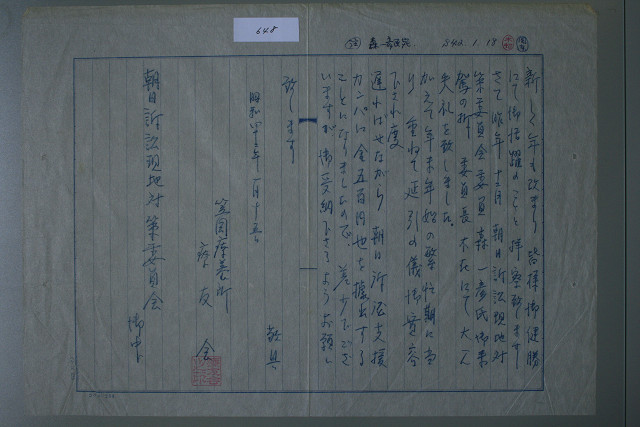 648
森一彦氏宛 S42.1.18
新しく年も改まり 皆様御健勝
にて御活躍のことと拝察致します
さて昨年十二月 朝日訴訟現地対
策委員会委員 森一彦氏御来
駕の折 委員長不在にて大へん
失礼を致しました。
加えて年末年始の繁忙期に当
り 重ねて延引の儀御寛容
下され度
遅ればせながら 朝日訴訟支援
カンパに金五百円也を拠出する
ことになりましたので 些少でござ
いますが御受納下さるようお願い
致します
敬具
昭和四十二年一月十五日
笠岡療養所
療友会
朝日訴訟現地対策委員会
御中